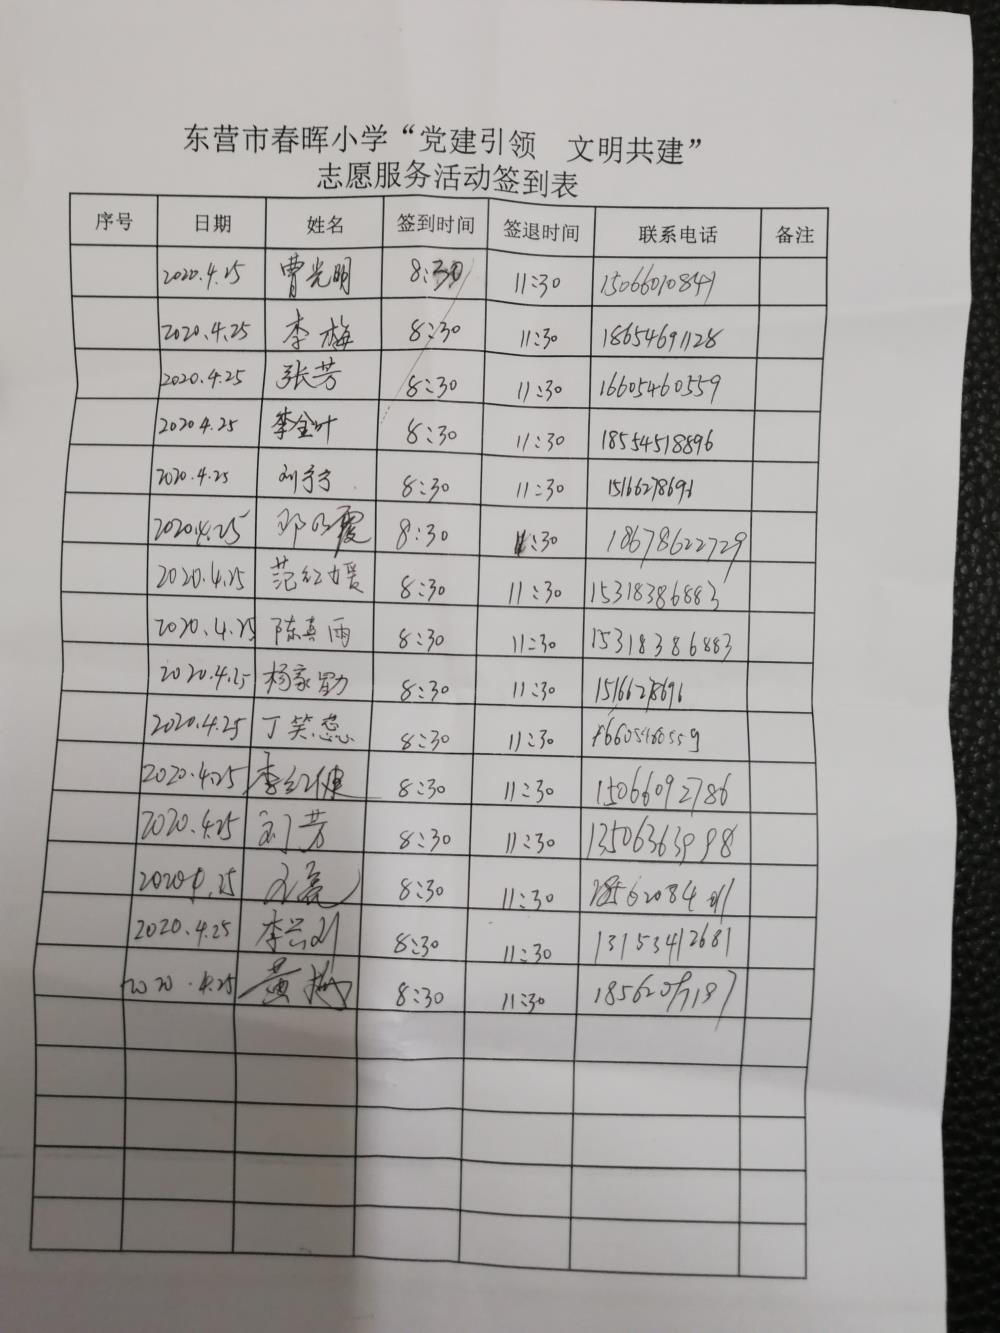 东营市春晖小学“党建引领 文明共建”
志愿服务活动签到表
序号 日期 姓名 签到时间 签退时间 联系电话 备注
2020.4.25 曹光明 8:30 11:30 15066010841
2020.4.25 李梅 8:30 11:30 18654691128
2020.4.25 张芳 8:30 11:30 16605460559
2020.4.25 李金叶 8:30 11:30 18554518896
2020.4.25 刘宁宁 8:30 11:30 15166278696
2020.4.25 邓明霞 8:30 11:30 18678622729
2020.4.25 范红媛 8:30 11:30 15318386883
2020.4.25 陈真雨 8:30 11:30 15318386883
2020.4.25 杨家勋 8:30 11:30 15166278696
2020.4.25 丁笑蕊 8:30 11:30 16605460559
2020.4.25 李红健 8:30 11:30 15066092786
2020.4.25 刘芳 8:30 11:30 13506363998
2020.4.25 8:30 11:30
2020.4.25 李兴刚 8:30 11:30 13153412681
2020.4.25 黄梅 8:30 11:30